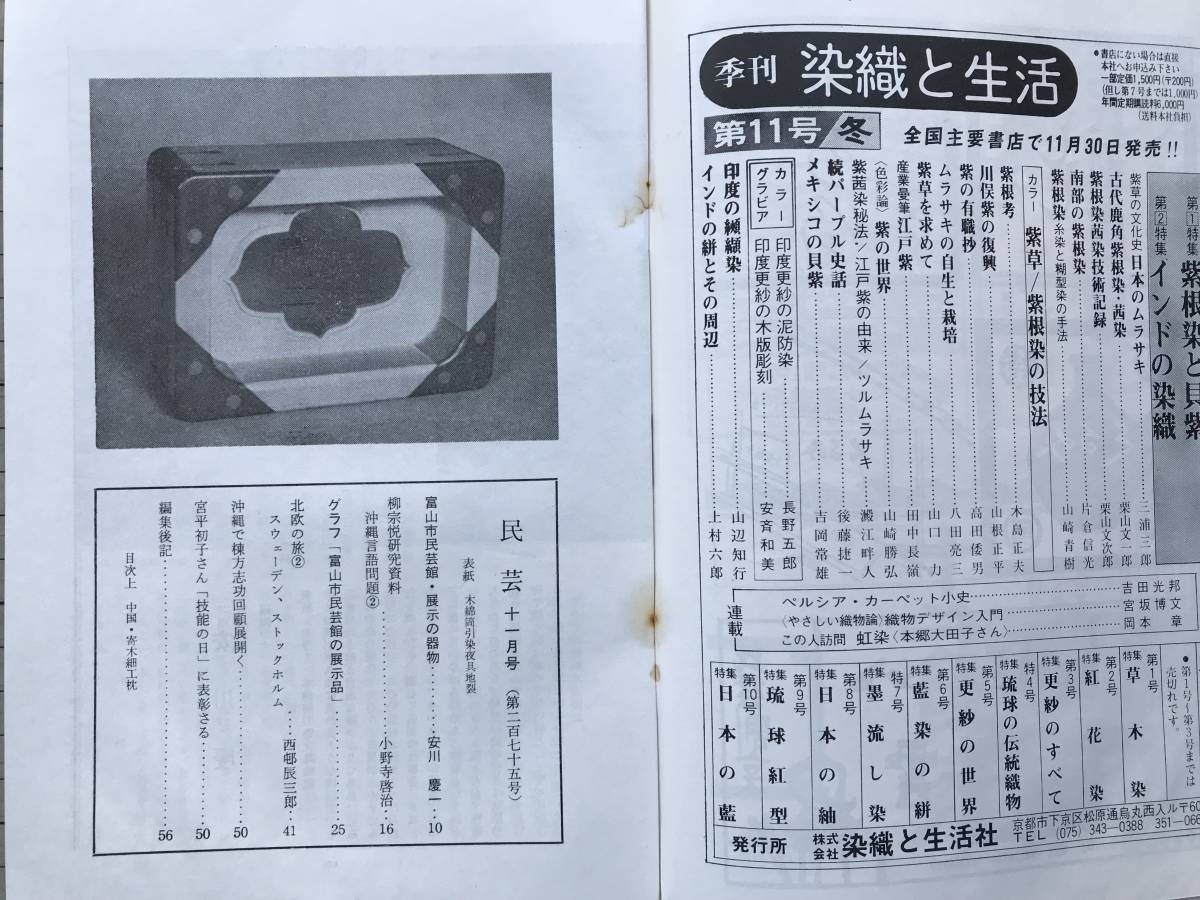 季刊 染織と生活
●書店にない場合は直接
本社へお申込み下さい
一部定価1,500円(〒200円)
(但し第7号までは1,000円)
年間定期購読料6,000円
(送料本社負担)
第11号/冬
全国主要書店で11月30日発売!!
第1特集 紫根染と貝紫
第2特集 インドの染織
紫草の文化史 日本のムラサキ……三浦三郎
古代鹿角紫根染・茜染……栗山文一郎
紫根染茜染技術記録……栗山文次郎
南部の紫根染……片倉信光
紫根染 糸染と糊型染の手法……山崎青樹
カラー 紫草/紫根染の技法
紫根考……木島正夫
川俣紫の復興……山根正平
紫の有職抄……高田倭男
ムラサキの自生と栽培……八田亮三
紫草を求めて……山口力
産業曼筆 江戸紫……田中長嶺
〈色彩論〉紫の世界……山崎勝弘
紫茜染秘法/江戸紫の由来/ツルムラサキ……澱江畔人
続パープル史話……後藤捷一
メキシコの貝紫……吉岡常雄
カラーグラビア
印度更紗の泥防染……長野五郎
印度更紗の木版彫刻……安斉和美
印度の纐纈染……山辺知行
インドの絣とその周辺……上村六郎
連載
ペルシア・カーペット小史……吉田光邦
〈やさしい織物論〉織物デザイン入門……宮坂博文
この人訪問 虹染〈本郷大田子さん〉……岡本章
●第1号〜第3号までは
売切れです。
第1号 特集 草木染
第2号 特集 紅花染
第3号 特集 更紗のすべて
特4号 特集 琉球の伝統織物
第5号 特集 更紗の世界
第6号 特集 藍染の絣
特7号 特集 墨流し染
第8号 特集 日本の紬
第9号 特集 琉球紅型
第10号 特集 日本の藍
発行所 株式会社 染織と生活社
京都市下京区松原通烏丸西入ル〒60
TEL (075) 343-0388 351-066
民芸 十一月号 (第二百七十五号)
表紙 木綿筒引染夜具地裂
富山市民芸館・展示の器物……安川慶一…10
柳宗悦研究資料
沖縄言語問題②……小野寺啓治…16
グラフ「富山市民芸館の展示品」……25
北欧の旅②
スウェーデン、ストックホルム……西邨辰三郎…41
沖縄で棟方志功回顧展開く……50
宮平初子さん「技能の日」に表彰さる……50
編集後記……56
目次上 中国・寄木細工枕